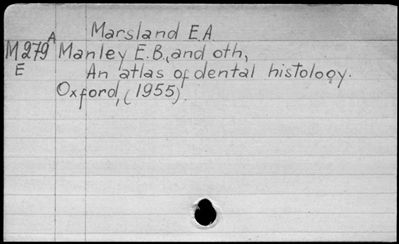 Marsland E.A.
M279A Manley E.B., and oth,
E An atlas of dental histology.
Oxford, (1955).